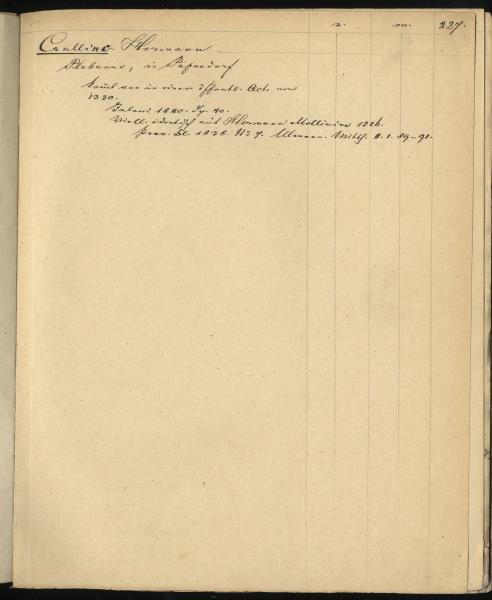 n. m. 227.
Caulline Hermann
Plebanus, in Papendorf
kommt vor in einer öffentl. Acte von
1330.
Inland 1840. Sp. 40.
Viell. identisch mit Hermann Mollinius 1326.
Prov. Bl. 1838. No 7. Ulmann. Mitth. II. 1. 89-91.